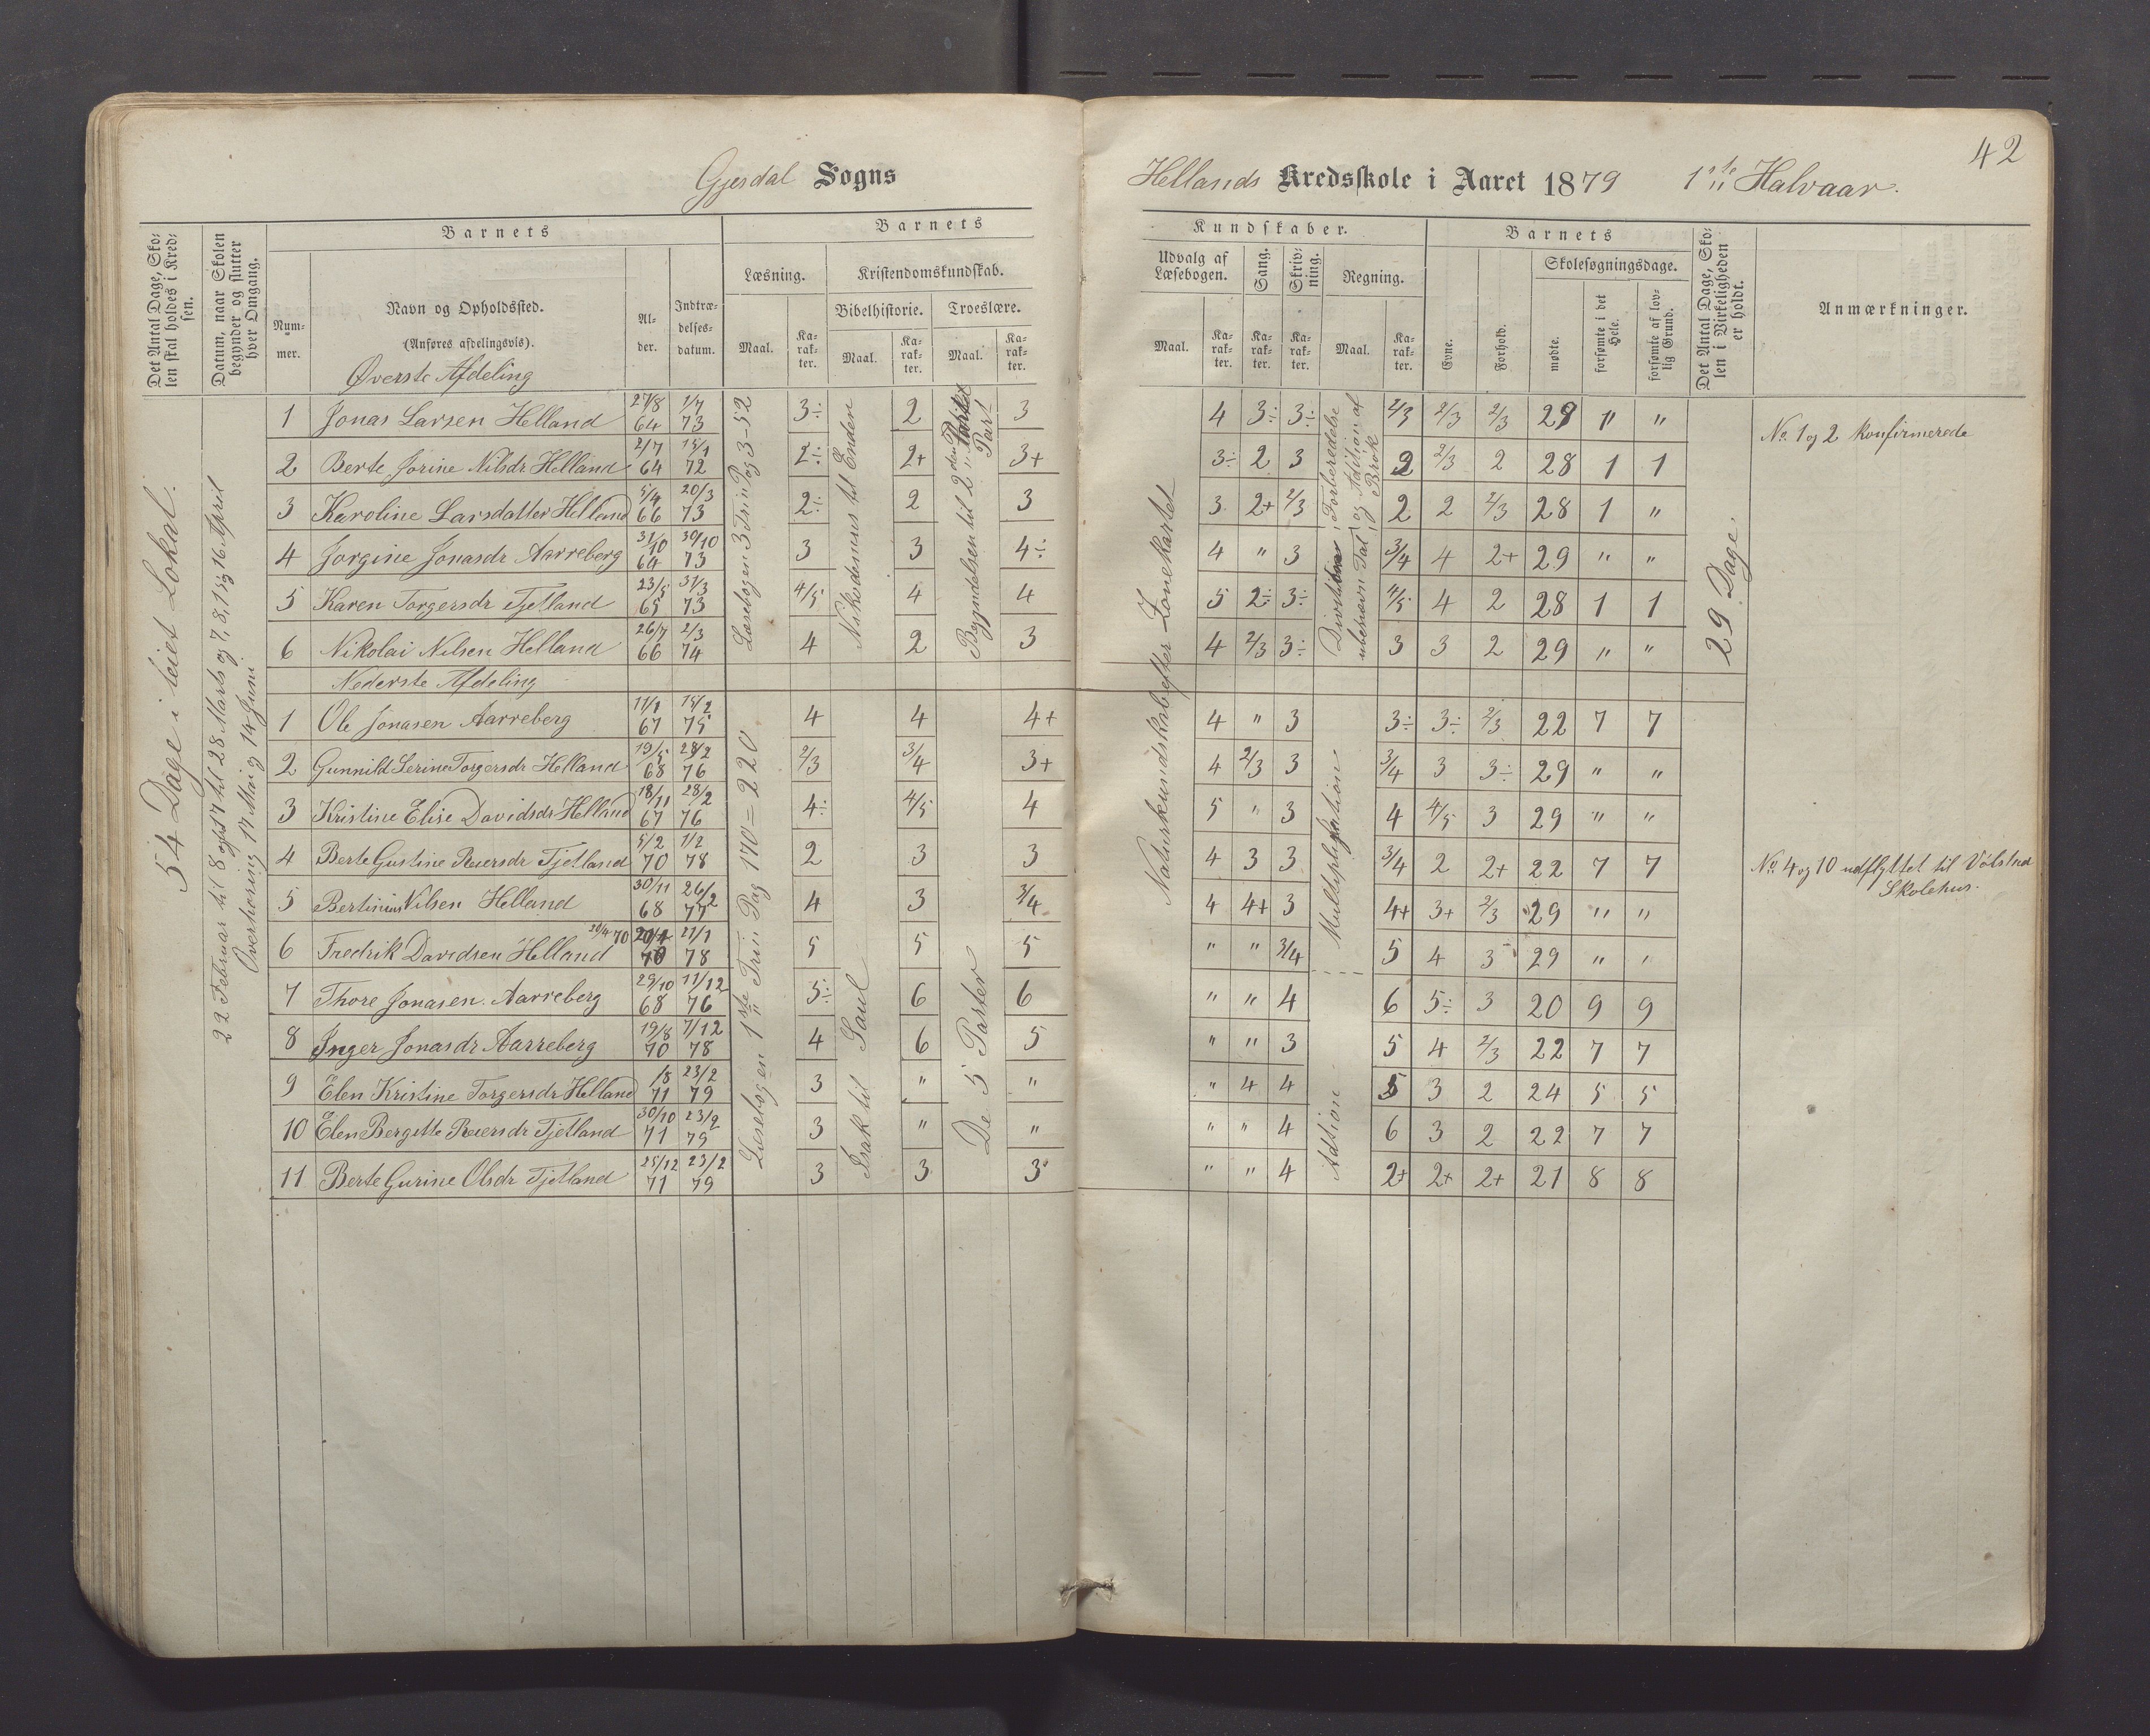 42
Gjesdal Sogns
Hellands Kredsskole i Aaret 1879 1ste Halvaar.
Det Antal Dage, Skolen skal holdes i Kredsen.
Datum, naar Skolen begynder og slutter hver Omgang.
Barnets
Nummer.
Navn og Opholdssted.
(Anføres afdelingsvis).
Alder.
Indtrædelsesdatum.
Barnets
Læsning.
Maal.
Karakter.
Kristendomskundskab.
Bibelhistorie.
Maal.
Karakter.
Troeslære.
Maal.
Karakter.
Kundskaber.
Udvalg af Læsebogen.
Maal.
Karakter.
Sang.
Karakter.
Skrivning.
Karakter.
Regning.
Maal.
Karakter.
Barnets
Evne.
Forhold.
Skolesøgningsdage.
mødte.
forsømte i det Hele.
forsømte af lovlig Grund.
Det Antal Dage, Skolen i Virkeligheden er holdt.
Anmærkninger.
54 Dage i leiet Lokal.
22 Februar til 8 og 17 til 28 Marts og 7, 8, 15, 16 April
Overhøring 17 Mai og 14 Juni
Læsebogen 3 Trin Pag 3-52
Nikodemus til Enden
Begyndelsen til 2den Part
Naturkundskab efter Zonekartet
ubenævn Tal og Adition af Brøk
29 Dage.
Øverste Afdeling
1 Jonas Larsen Helland 27/8 64 1/7 73 3÷ 2 3 4 3÷ 3÷ 2/3 2/3 2/3 29 " "
No. 1 og 2 konfirmerede
2 Berte Jorine Nilsdr Helland 2/7 64 15/1 72 2÷ 2+ 3+ 3÷ 2 3 2 2/3 2 28 1 1
3 Karoline Larsdatter Helland 5/4 66 20/3 73 2÷ 2 3 3 2+ 2/3 2 2 2/3 28 1 "
4 Jorgine Jonasdr Aarreberg 31/10 64 30/10 73 3 3 4÷ 4 " 3 3/4 4 2+ 29 " "
5 Karen Torgersdr Tjetland 23/5 65 31/3 73 4/5 4 4 5 2÷ 3÷ 4/5 4 2 28 1 1
6 Nikolai Nilsen Helland 26/7 66 2/3 74 4 2 3 4 2/3 3÷ 3 3 2 29 " "
Nederste Afdeling
Læsebogen 1ste Trin Pag 170=220
Isak til Saul
De 5 Parter
Multiplikation
Adition
1 Ole Jonasen Aarreberg 11/1 67 15/2 75 4 4 4+ 4 " 3 3÷ 3÷ 2/3 22 7 7
2 Gunnild Serine Torgersdr Helland 19/5 68 28/2 76 2/3 3/4 3+ 4 2/3 3 3/4 3 3÷ 29 " "
3 Kristine Elise Davidsdr Helland 18/11 67 28/2 76 4÷ 4/5 4 5 " 3 4 4/5 3 29 " "
4 Berte Gustine Reiersdr Tjetland 5/2 70 1/2 78 2 3 3 4 3 3 3/4 2 2+ 22 7 7
No. 4 og 10 udflyttet til Vølstad
Skolehus.
5 Bertinius Nilsen Helland 30/11 68 26/2 77 4 3 3/4 4 4+ 3 4+ 3+ 2/3 29 " "
6 Fredrik Davidsen Helland 20/4 70 21/1 78 5 5 5 " " 3/4 5 4 3 29 " "
7 Thore Jonasen Aarreberg 29/10 68 11/12 76 5÷ 6 6 " " 4 6 5÷ 3 20 9 9
8 Inger Jonasdr Aarreberg 19/8 70 7/12 78 4 6 5 " " 3 5 4 2/3 22 7 7
9 Elen Kristine Torgersdr Helland /8 71 23/2 79 3 " " " 4 4 5 3 2 24 5 5
10 Elen Bergitte Reiersdr Tjetland 30/10 71 23/2 79 3 " " " " 4 6 3 2 22 7 7
11 Berte Gurine Olsdr Tjetland 25/12 71 23/2 79 3 3 3 " " 4 2+ 2+ 2+ 21 8 8